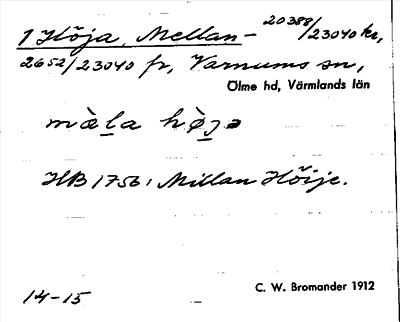 1 Höja, Mellan- 20388/23040 kr,
2652/23040 fr, Varnums sn,
Ölme hd, Värmlands län
mæ̀l̲a hø̀j̲ə
HB 1756: Millan Höije.
14-15
C. W. Bromander 1912